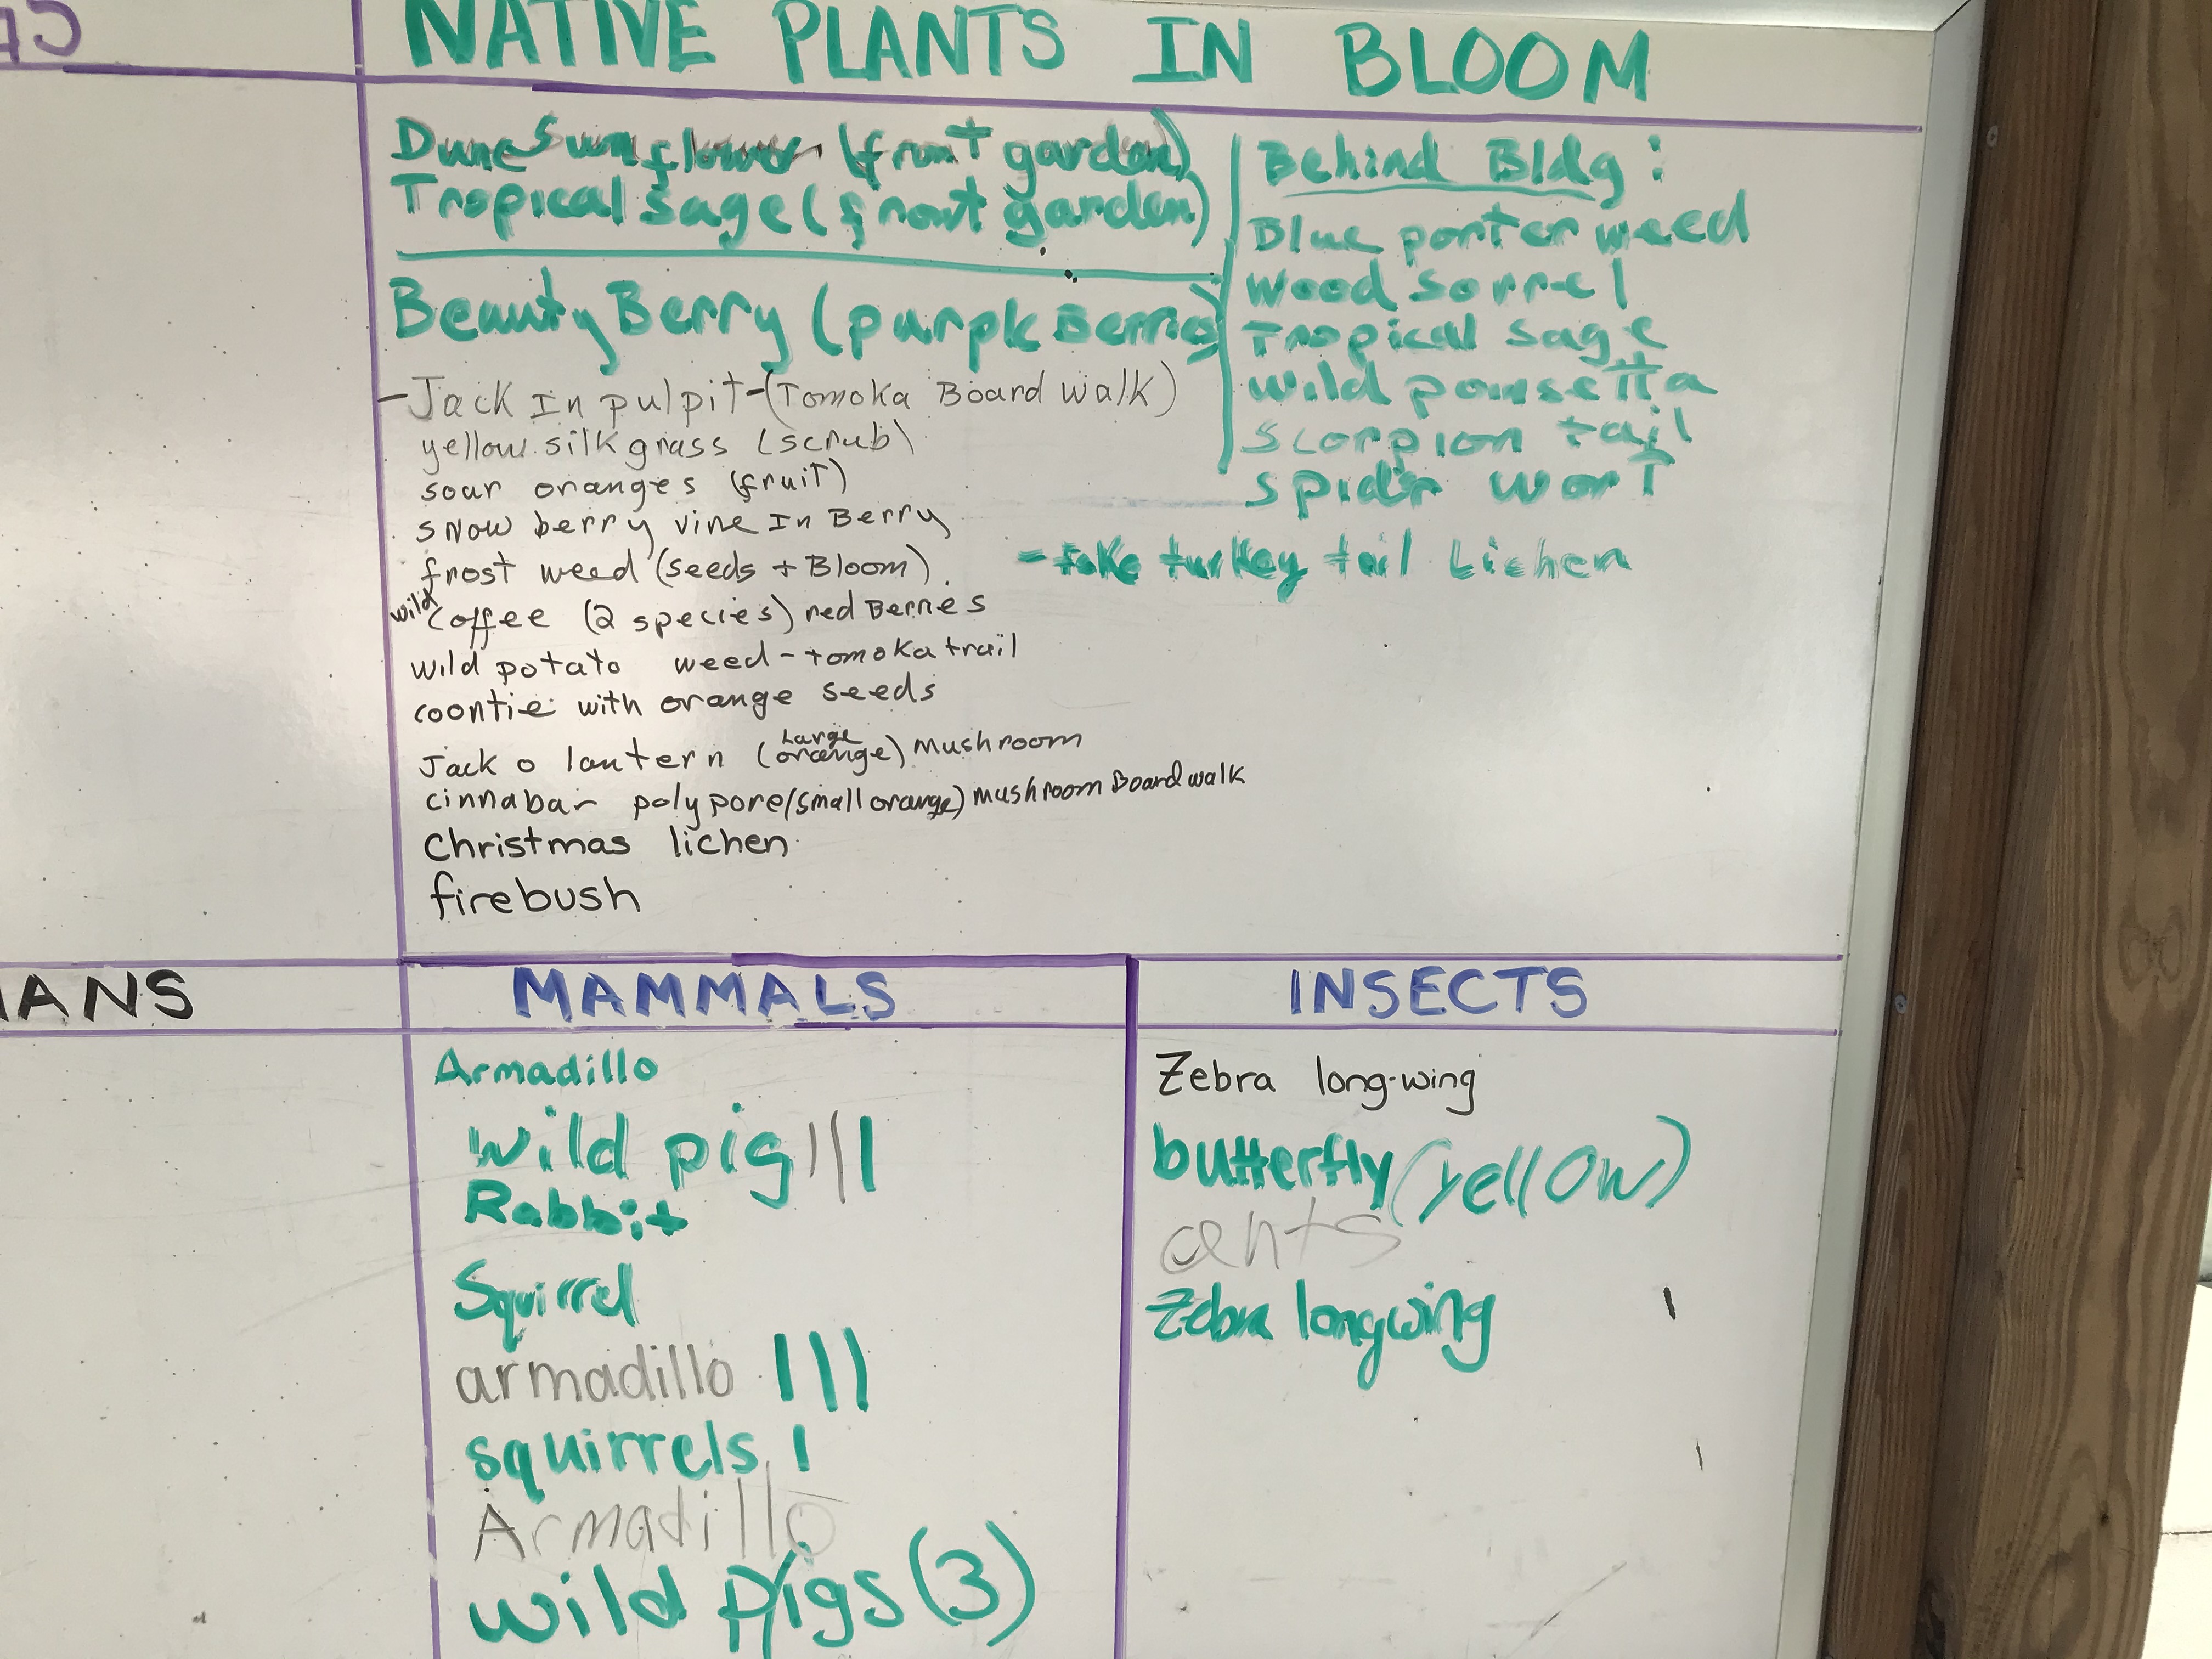 NATIVE PLANTS IN BLOOM
Dune Sunflower (front garden)
Tropical sage (front garden)
Beauty Berry (purple Berries
- Jack In pulpit - (Tomoka Board walk)
yellow silkgrass (scrub)
sour oranges (fruit)
snow berry vine In Berry
frost weed (seeds + Bloom).
wild coffee (2 species) red Berries
wild potato weed - tomoka trail
coontie with orange seeds
Jack o lantern (Large orange) mushroom
cinnabar polypore (small orange) mushroom Boardwalk
Christmas lichen
firebush
Behind Bldg:
Blue porter weed
Wood sorrel
Tropical sage
Wild poinsetta
Scorpion tail
Spider wort
- fake turkey tail Lichen
IANS
MAMMALS
Armadillo
wild pig |||
Rabbit
Squirrel
armadillo |||
squirrels |
Armadillo
wild pigs (3)
INSECTS
Zebra long-wing
butterfly (yellow)
ants
Zebra longwing